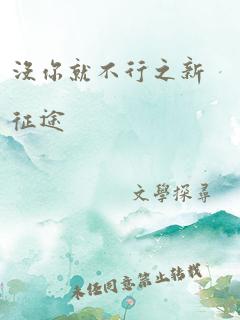 沒你就不行之新
征途
文學探尋
未经同意禁止转载